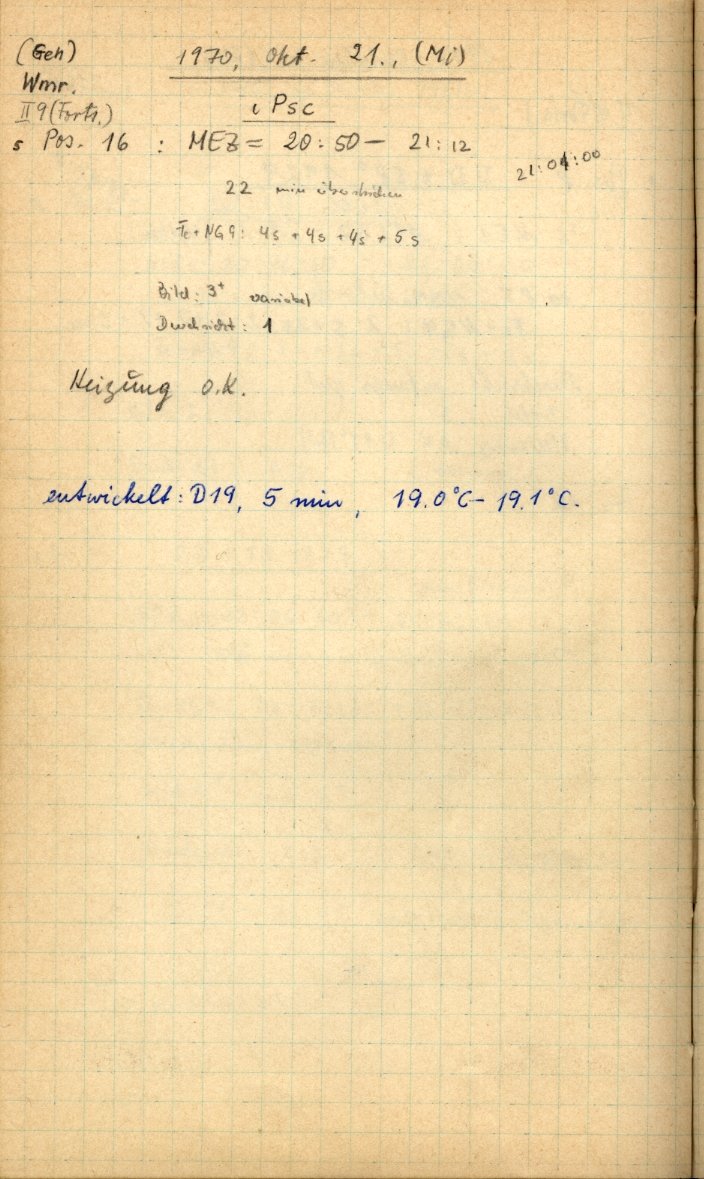 (Geh)
1970, Okt. 21., (Mi)
Wmr.
II 9 (Forts.)
ι Psc
s Pos. 16 : MEZ = 20:50 – 21:12
21:01:00
22 min überstrichen
Fe + NG9: 4s + 4s + 4s + 5s
Bild: 3+ variabel
Durchsicht: 1
Heizung o.K.
entwickelt: D19, 5 min, 19.0°C – 19.1°C.